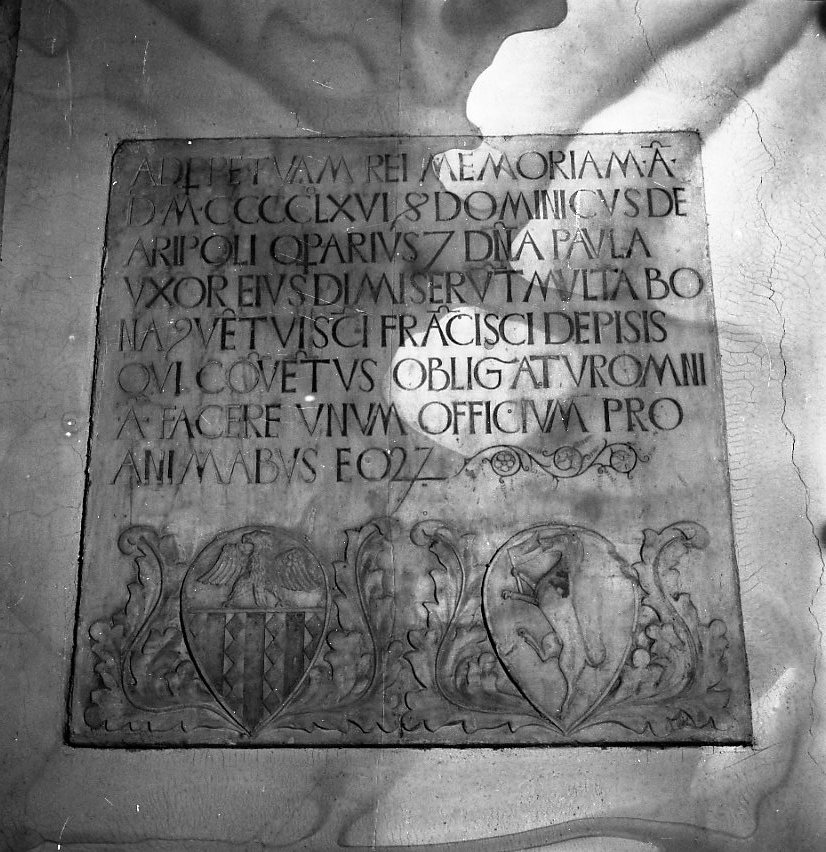 AD PEPETVAM REI MEMORIAM· Ā·
DM̄·CCCCLXVI 8 DOMINICVS DE
ARIPOLI QPARIVS 7 DN̄A PAVLA
VXOR EIVS DIMISERVT MVLTA BO
NA 9VĒTVI SC̄I FRĀCISCI DE PISIS
QVI COVĒTVS OBLIGATVR OMNI
·A· FACERE VNVM OFFICIVM PRO
ANIMABVS EOꝜ